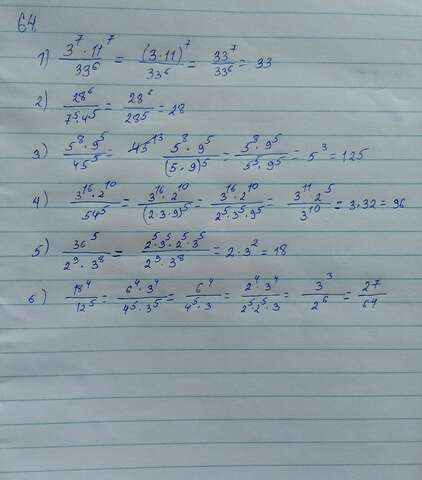 64.
1) 3⁷·11⁷/33⁶ = (3·11)⁷/33⁶ = 33⁷/33⁶ = 33
2) 28⁶/7⁵·4⁵ = 28⁶/28⁵ = 28
3) 5⁸·9⁵/45⁵ = 45¹³ 5⁸·9⁵/(5·9)⁵ = 5⁸·9⁵/5⁵·9⁵ = 5³ = 125
4) 3¹⁶·2¹⁰/54⁵ = 3¹⁶·2¹⁰/(2·3·9)⁵ = 3¹⁶·2¹⁰/2⁵·3⁵·9⁵ = 3¹¹2⁵/3¹⁰ = 3·32 = 96
5) 36⁵/2⁹·3⁸ = 2⁵·3⁵·2⁵·3⁵/2⁹·3⁸ = 2·3² = 18
6) 18⁴/12⁵ = 6⁴·3⁴/4⁵·3⁵ = 6⁴/4⁵·3 = 2⁴·3⁴/2⁵2⁵·3 = 3³/2⁶ = 27/64